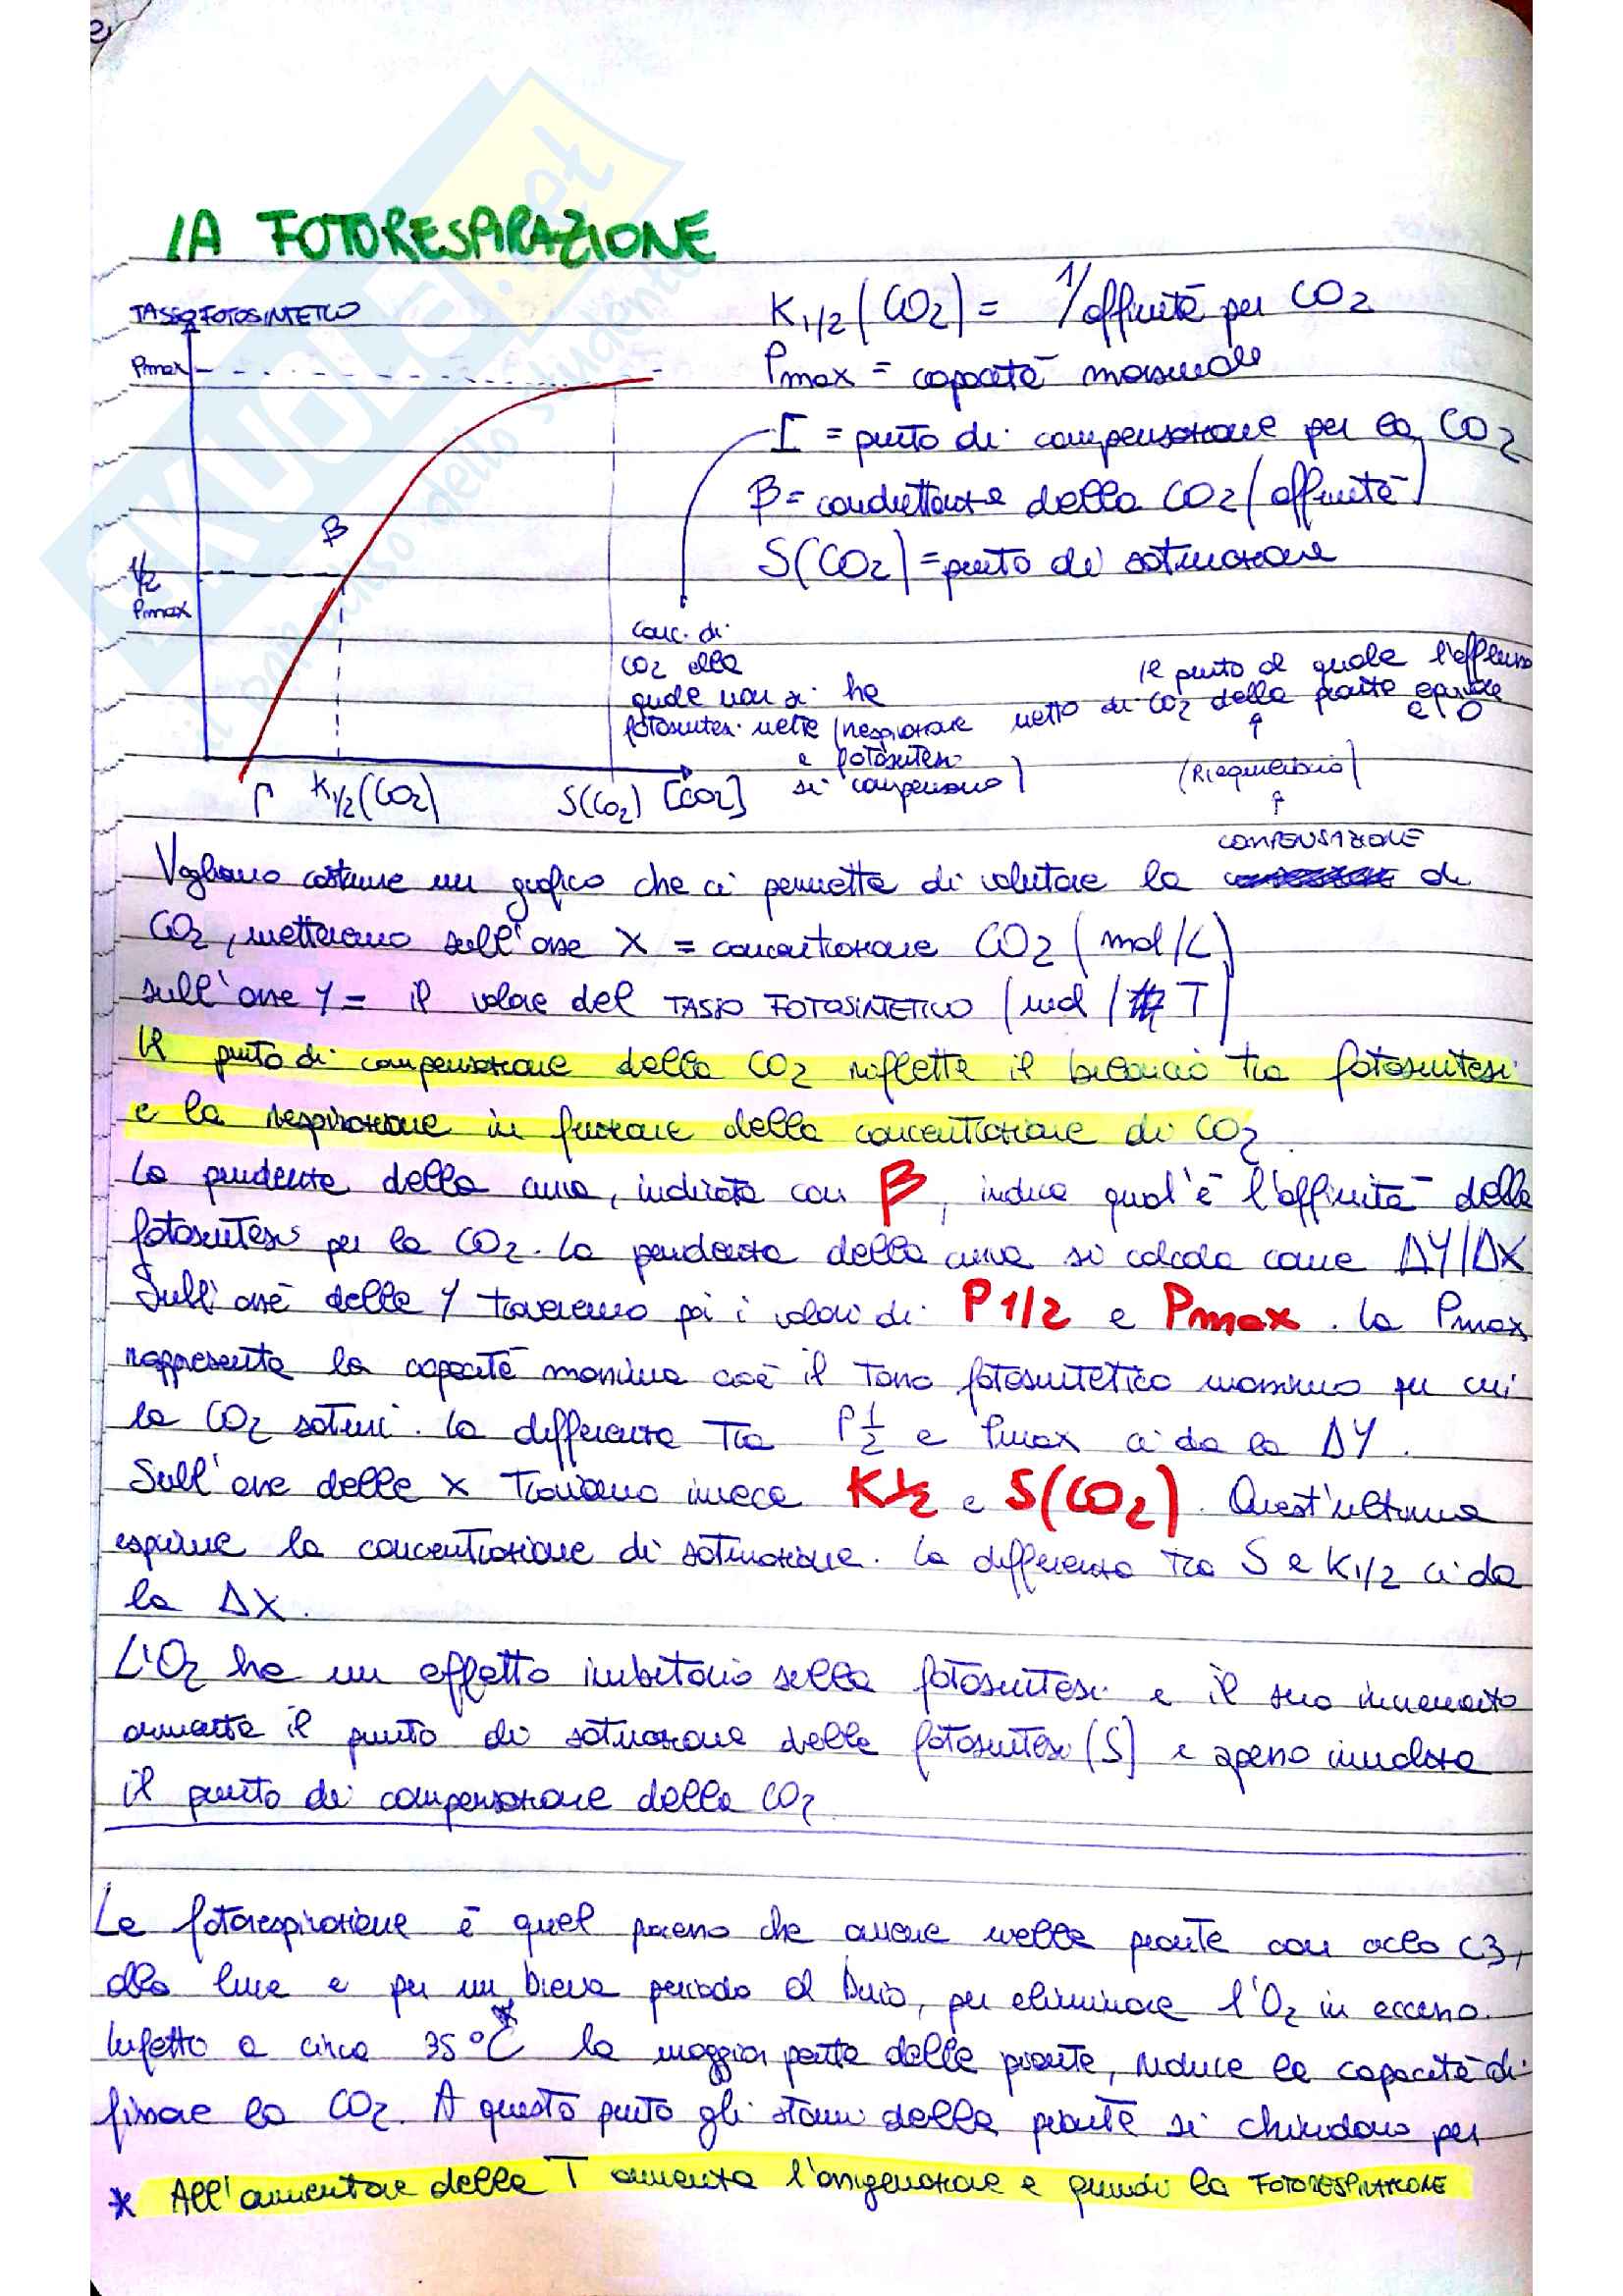 LA FOTORESPIRAZIONE
TASSO FOTOSINTETICO
Pmax
β
1/2
Pmax
Γ K1/2(CO2) S(CO2) [CO2]
K1/2(CO2) = 1/affinità per CO2
Pmax = capacità massimale
Γ = punto di compensazione per la CO2
β = conduttanza della CO2 (affinità)
S(CO2) = punto di saturazione
conc. di
CO2 alla
quale non si ha
fotosintesi netta (respirazione
e fotosintesi
si compensano)
il punto al quale l'efflusso
netto di CO2 della pianta equivale
a 0
(Riequilibrio)
COMPENSAZIONE
Vogliamo costruire un grafico che ci permetta di valutare la di
CO2, metteremo sull'asse X = concentrazione CO2 (mol/L)
sull'asse Y = il valore del TASSO FOTOSINTETICO (mol / T)
Il punto di compensazione della CO2 riflette il bilancio tra fotosintesi
e la respirazione in funzione della concentrazione di CO2.
La pendenza della curva, indicata con β, indica qual'è l'affinità della
fotosintesi per la CO2. La pendenza della curva si calcola come ΔY/ΔX
Sull'asse delle Y troveremo poi i valori di P 1/2 e Pmax. La Pmax
rappresenta la capacità massima cioè il tasso fotosintetico massimo per cui
la CO2 saturi. La differenza tra P 1/2 e Pmax ci da la ΔY.
Sull'asse delle x troviamo invece K1/2 e S(CO2). Quest'ultima
esprime la concentrazione di saturazione. La differenza tra S e K1/2 ci da
la ΔX.
L'O2 ha un effetto inibitorio sulla fotosintesi e il suo incremento
aumenta il punto di saturazione della fotosintesi (S) e spesso innalza
il punto di compensazione della CO2
La fotorespirazione è quel processo che avviene nelle piante con ciclo C3,
alla luce e per un breve periodo al buio, per eliminare l'O2 in eccesso.
Infatti a circa 35°C * la maggior parte delle piante, riduce la capacità di
fissare la CO2. A questo punto gli stomi della pianta si chiudono per
* All'aumentare della T aumenta l'ossigenazione e quindi la FOTORESPIRAZIONE
SKUOLA.net
il paradiso dello studente